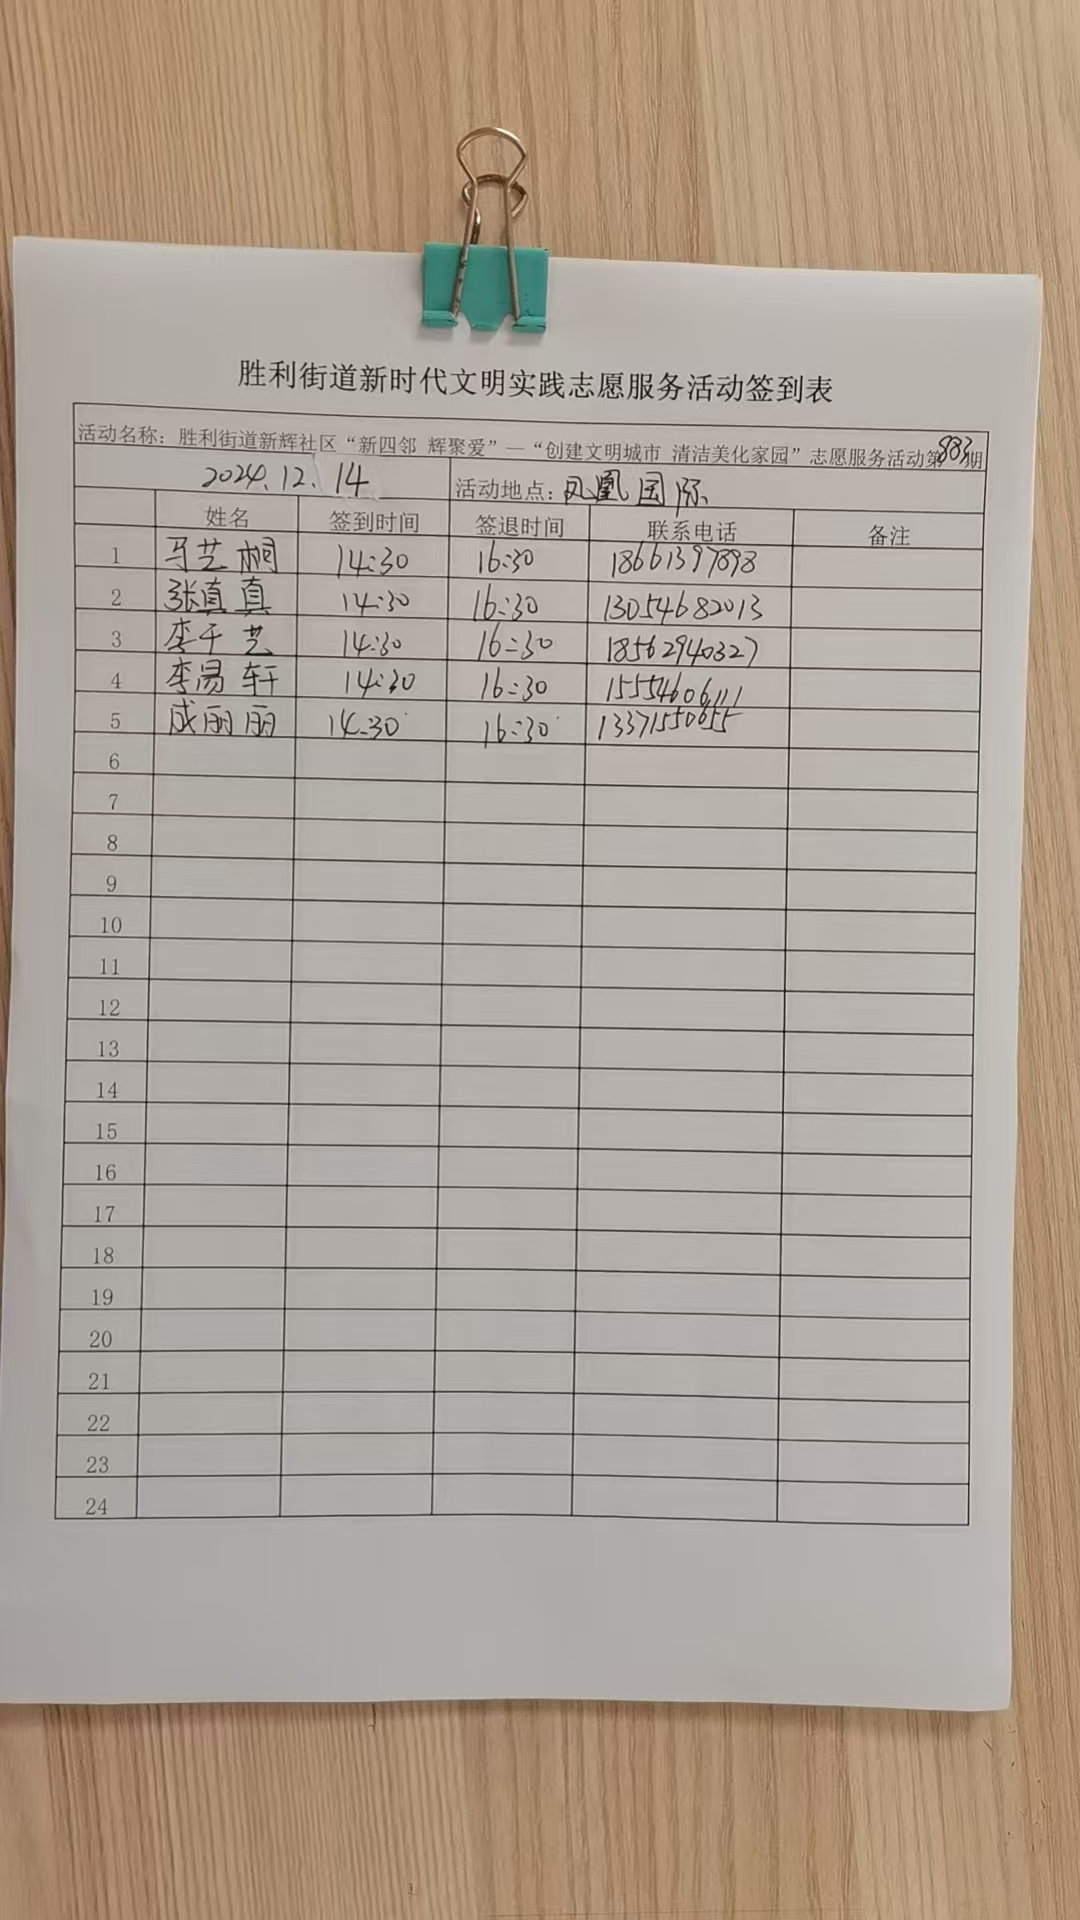 胜利街道新时代文明实践志愿服务活动签到表
活动名称：胜利街道新辉社区“新四邻 辉聚爱”—“创建文明城市 清洁美化家园”志愿服务活动第883期
2024.12.14 活动地点：凤凰国际
姓名 签到时间 签退时间 联系电话 备注
1 马艺桐 14:30 16:30 18661397898
2 张真真 14:30 16:30 13054682013
3 李千艺 14:30 16:30 18562940327
4 李易轩 14:30 16:30 15554606111
5 成丽丽 14:30 16:30 13371550655
6
7
8
9
10
11
12
13
14
15
16
17
18
19
20
21
22
23
24